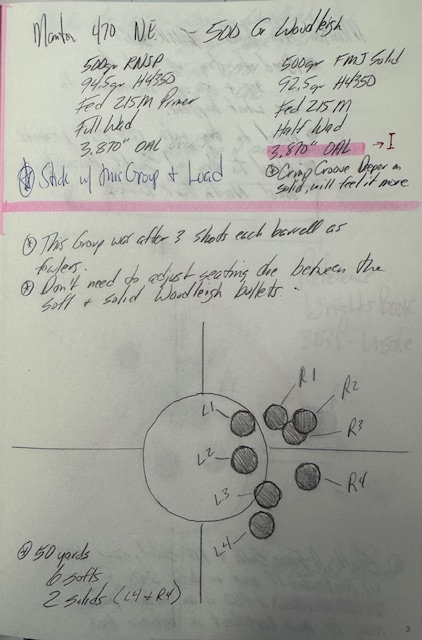 470 NE - 500 Gr Woodleigh
500gr RNSP
94.5gr H4350
Fed 215M Primer
Full Wad
3.870" OAL
500gr FMJ Solid
92.5gr H4350
Fed 215M
Half Wad
3.870" OAL → I
Crimp Groove Deeper on
solid, will feel it more
Stick w/ this Group + Load
This Group was after 3 shots each barrell as
fowlers.
Don't need to adjust seating die between the
soft + solid Woodleigh bullets.
R1
L1
R2
R3
L2
R4
L3
L4
50 yards
6 softs
2 solids (L4 + R4)
3